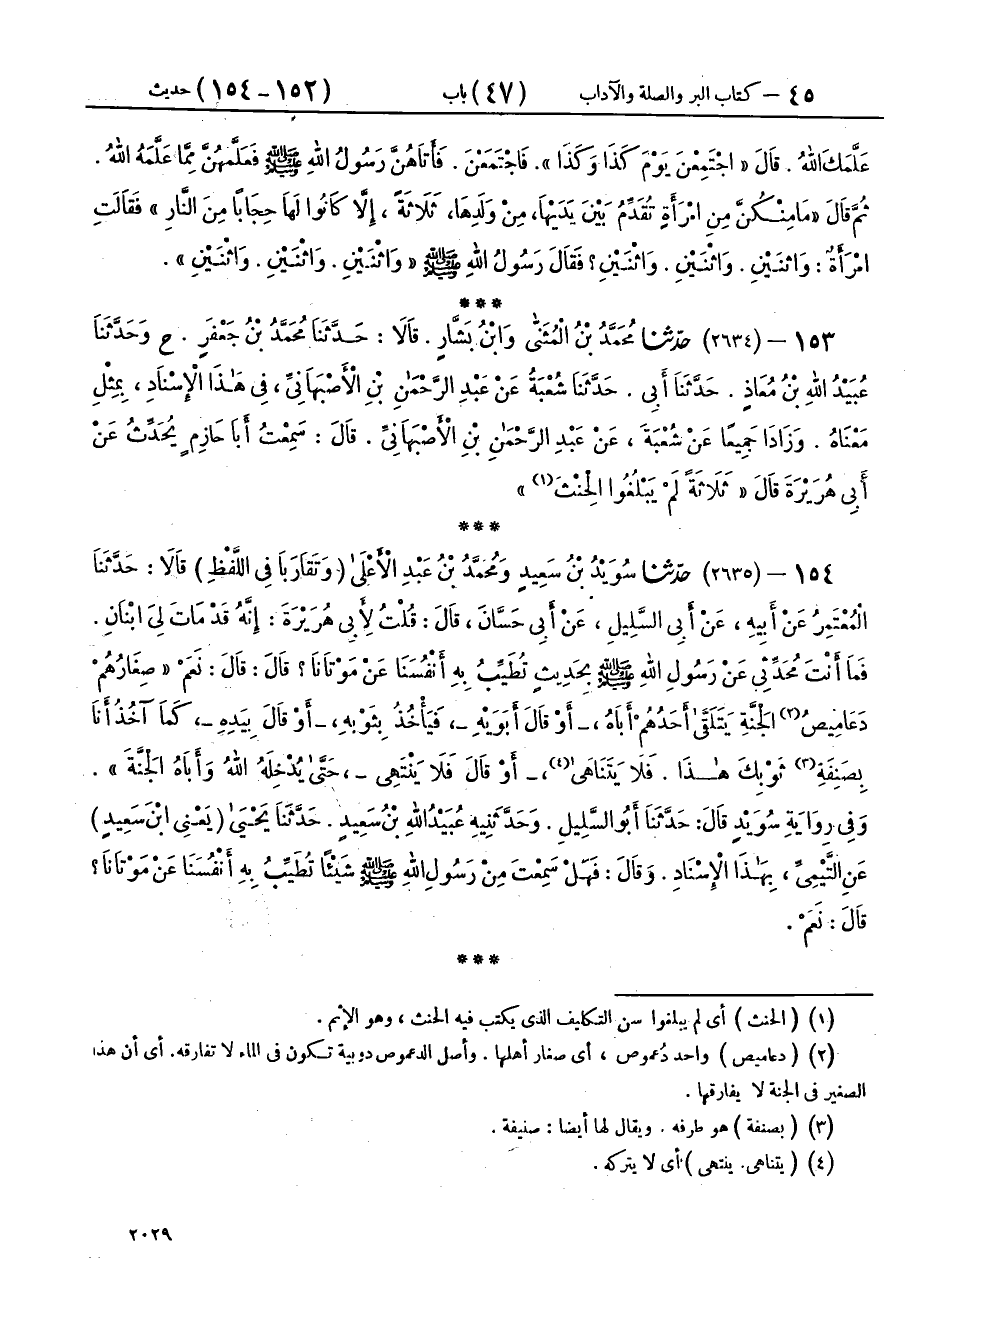 ٤٥ – كتاب البر والصلة والآداب (٤٧) باب (١٥٢–١٥٤) حديث
عَلَّمَكَ اللهُ . قَالَ « اجْتَمِعْنَ يَوْمَ كَذَا وَكَذَا ». فَاجْتَمَعْنَ . فَأَتَاهُنَّ رَسُولُ اللهِ ﷺ فَعَلَّمَهُنَّ مِمَّا عَلَّمَهُ اللهُ .
ثُمَّ قَالَ « مَا مِنْكُنَّ مِنِ امْرَأَةٍ تُقَدِّمُ بَيْنَ يَدَيْهَا، مِنْ وَلَدِهَا، ثَلَاثَةً ، إِلَّا كَانُوا لَهَا حِجَابًا مِنَ النَّارِ » فَقَالَتِ
امْرَأَةٌ : وَاثْنَيْنِ . وَاثْنَيْنِ . وَاثْنَيْنِ ؟ فَقَالَ رَسُولُ اللهِ ﷺ « وَاثْنَيْنِ . وَاثْنَيْنِ . وَاثْنَيْنِ » .
***
١٥٣ – (٢٦٣٤) حدّثنا مُحَمَّدُ بْنُ الْمُثَنَّى وَابْنُ بَشَّارٍ . قَالَا : حَدَّثَنَا مُحَمَّدُ بْنُ جَعْفَرٍ . ح وَحَدَّثَنَا
عُبَيْدُ اللهِ بْنُ مُعَاذٍ . حَدَّثَنَا أَبِي . حَدَّثَنَا شُعْبَةُ عَنْ عَبْدِ الرَّحْمَٰنِ بْنِ الْأَصْبَهَانِيِّ ، فِى هَٰذَا الْإِسْنَادِ ، بِمِثْلِ
مَعْنَاهُ . وَزَادَا جَمِيعًا عَنْ شُعْبَةَ ، عَنْ عَبْدِ الرَّحْمَٰنِ بْنِ الْأَصْبَهَانِيِّ . قَالَ : سَمِعْتُ أَبَا حَازِمٍ يُحَدِّثُ عَنْ
أَبِي هُرَيْرَةَ قَالَ « ثَلَاثَةً لَمْ يَبْلُغُوا الْحِنْثَ(١) »
***
١٥٤ – (٢٦٣٥) حدّثنا سُوَيْدُ بْنُ سَعِيدٍ وَمُحَمَّدُ بْنُ عَبْدِ الْأَعْلَىٰ ( وَتَقَارَبَا فِى اللَّفْظِ ) قَالَا : حَدَّثَنَا
الْمُعْتَمِرُ عَنْ أَبِيهِ ، عَنْ أَبِي السَّلِيلِ ، عَنْ أَبِي حَسَّانَ ، قَالَ : قُلْتُ لِأَبِي هُرَيْرَةَ : إِنَّهُ قَدْ مَاتَ لِيَ ابْنَانِ .
فَمَا أَنْتَ مُحَدِّثِي عَنْ رَسُولِ اللهِ ﷺ بِحَدِيثٍ تُطَيِّبُ بِهِ أَنْفُسَنَا عَنْ مَوْتَانَا ؟ قَالَ : قَالَ : نَعَمْ « صِغَارُهُمْ
دَعَامِيصُ(٢) الْجَنَّةِ يَتَلَقَّىٰ أَحَدُهُمْ أَبَاهُ ، – أَوْ قَالَ أَبَوَيْهِ –، فَيَأْخُذُ بِثَوْبِهِ، – أَوْ قَالَ بِيَدِهِ –، كَمَا آخُذُ أَنَا
بِصَنِفَةِ(٣) ثَوْبِكَ هَٰذَا . فَلَا يَتَنَاهَى(٤)، – أَوْ قَالَ فَلَا يَنْتَهِى –، حَتَّىٰ يُدْخِلَهُ اللهُ وَأَبَاهُ الْجَنَّةَ » .
وَفِى رِوَايَةِ سُوَيْدٍ قَالَ: حَدَّثَنَا أَبُو السَّلِيلِ . وَحَدَّثَنِيهِ عُبَيْدُ اللهِ بْنُ سَعِيدٍ . حَدَّثَنَا يَحْيَىٰ ( يَعْنِى ابْنَ سَعِيدٍ )
عَنِ التَّيْمِيِّ ، بِهَٰذَا الْإِسْنَادِ . وَقَالَ : فَهَلْ سَمِعْتَ مِنْ رَسُولِ اللهِ ﷺ شَيْئًا تُطَيِّبُ بِهِ أَنْفُسَنَا عَنْ مَوْتَانَا ؟
قَالَ : نَعَمْ .
***
(١) ( الحنث ) أى لم يبلغوا سن التكليف الذى يكتب فيه الحنث ، وهو الإثم .
(٢) ( دعاميص ) واحد دُعموص ، أى صغار أهلها . وأصل الدعموص دويبة تكون فى الماء لا تفارقه. أى أن هذا
الصغير فى الجنة لا يفارقها .
(٣) ( بصنفة ) هو طرفه . ويقال لها أيضا : صنيفة .
(٤) ( يتناهى. ينتهى ) أى لا يتركه .
٢٠٢٩